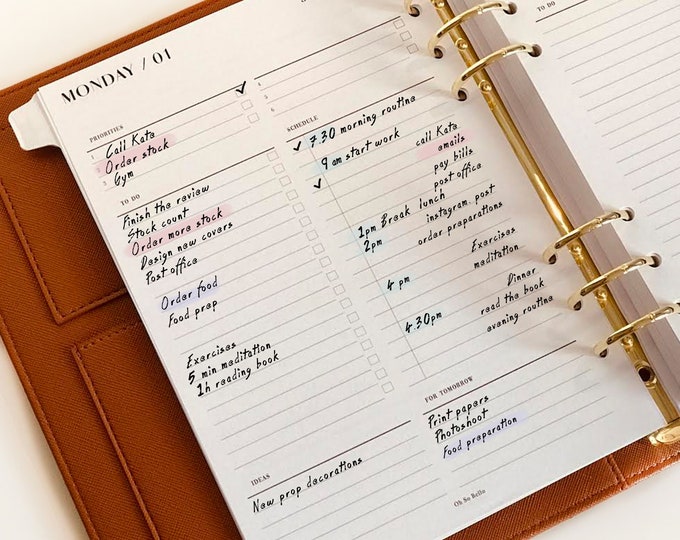 MONDAY / 01
PRIORITIES
1 Call Kata
2 Order stock
3 Gym
TO DO
Finish the review
Stock count
Order more stock
Design new covers
Post office
Order food
Food prep
Exercises
5 min meditation
1h reading book
IDEAS
New prop decorations
3
4
SCHEDULE
7.30 morning routine
9 am start work
call Kata
emails
pay bills
post office
1 pm Break lunch
2 pm instagram post
order preparations
4 pm Exercises
meditation
4.30pm Dinner
read the book
evening routine
FOR TOMORROW
Print papers
Photoshoot
Food preparation
Oh So Bello
TO DO